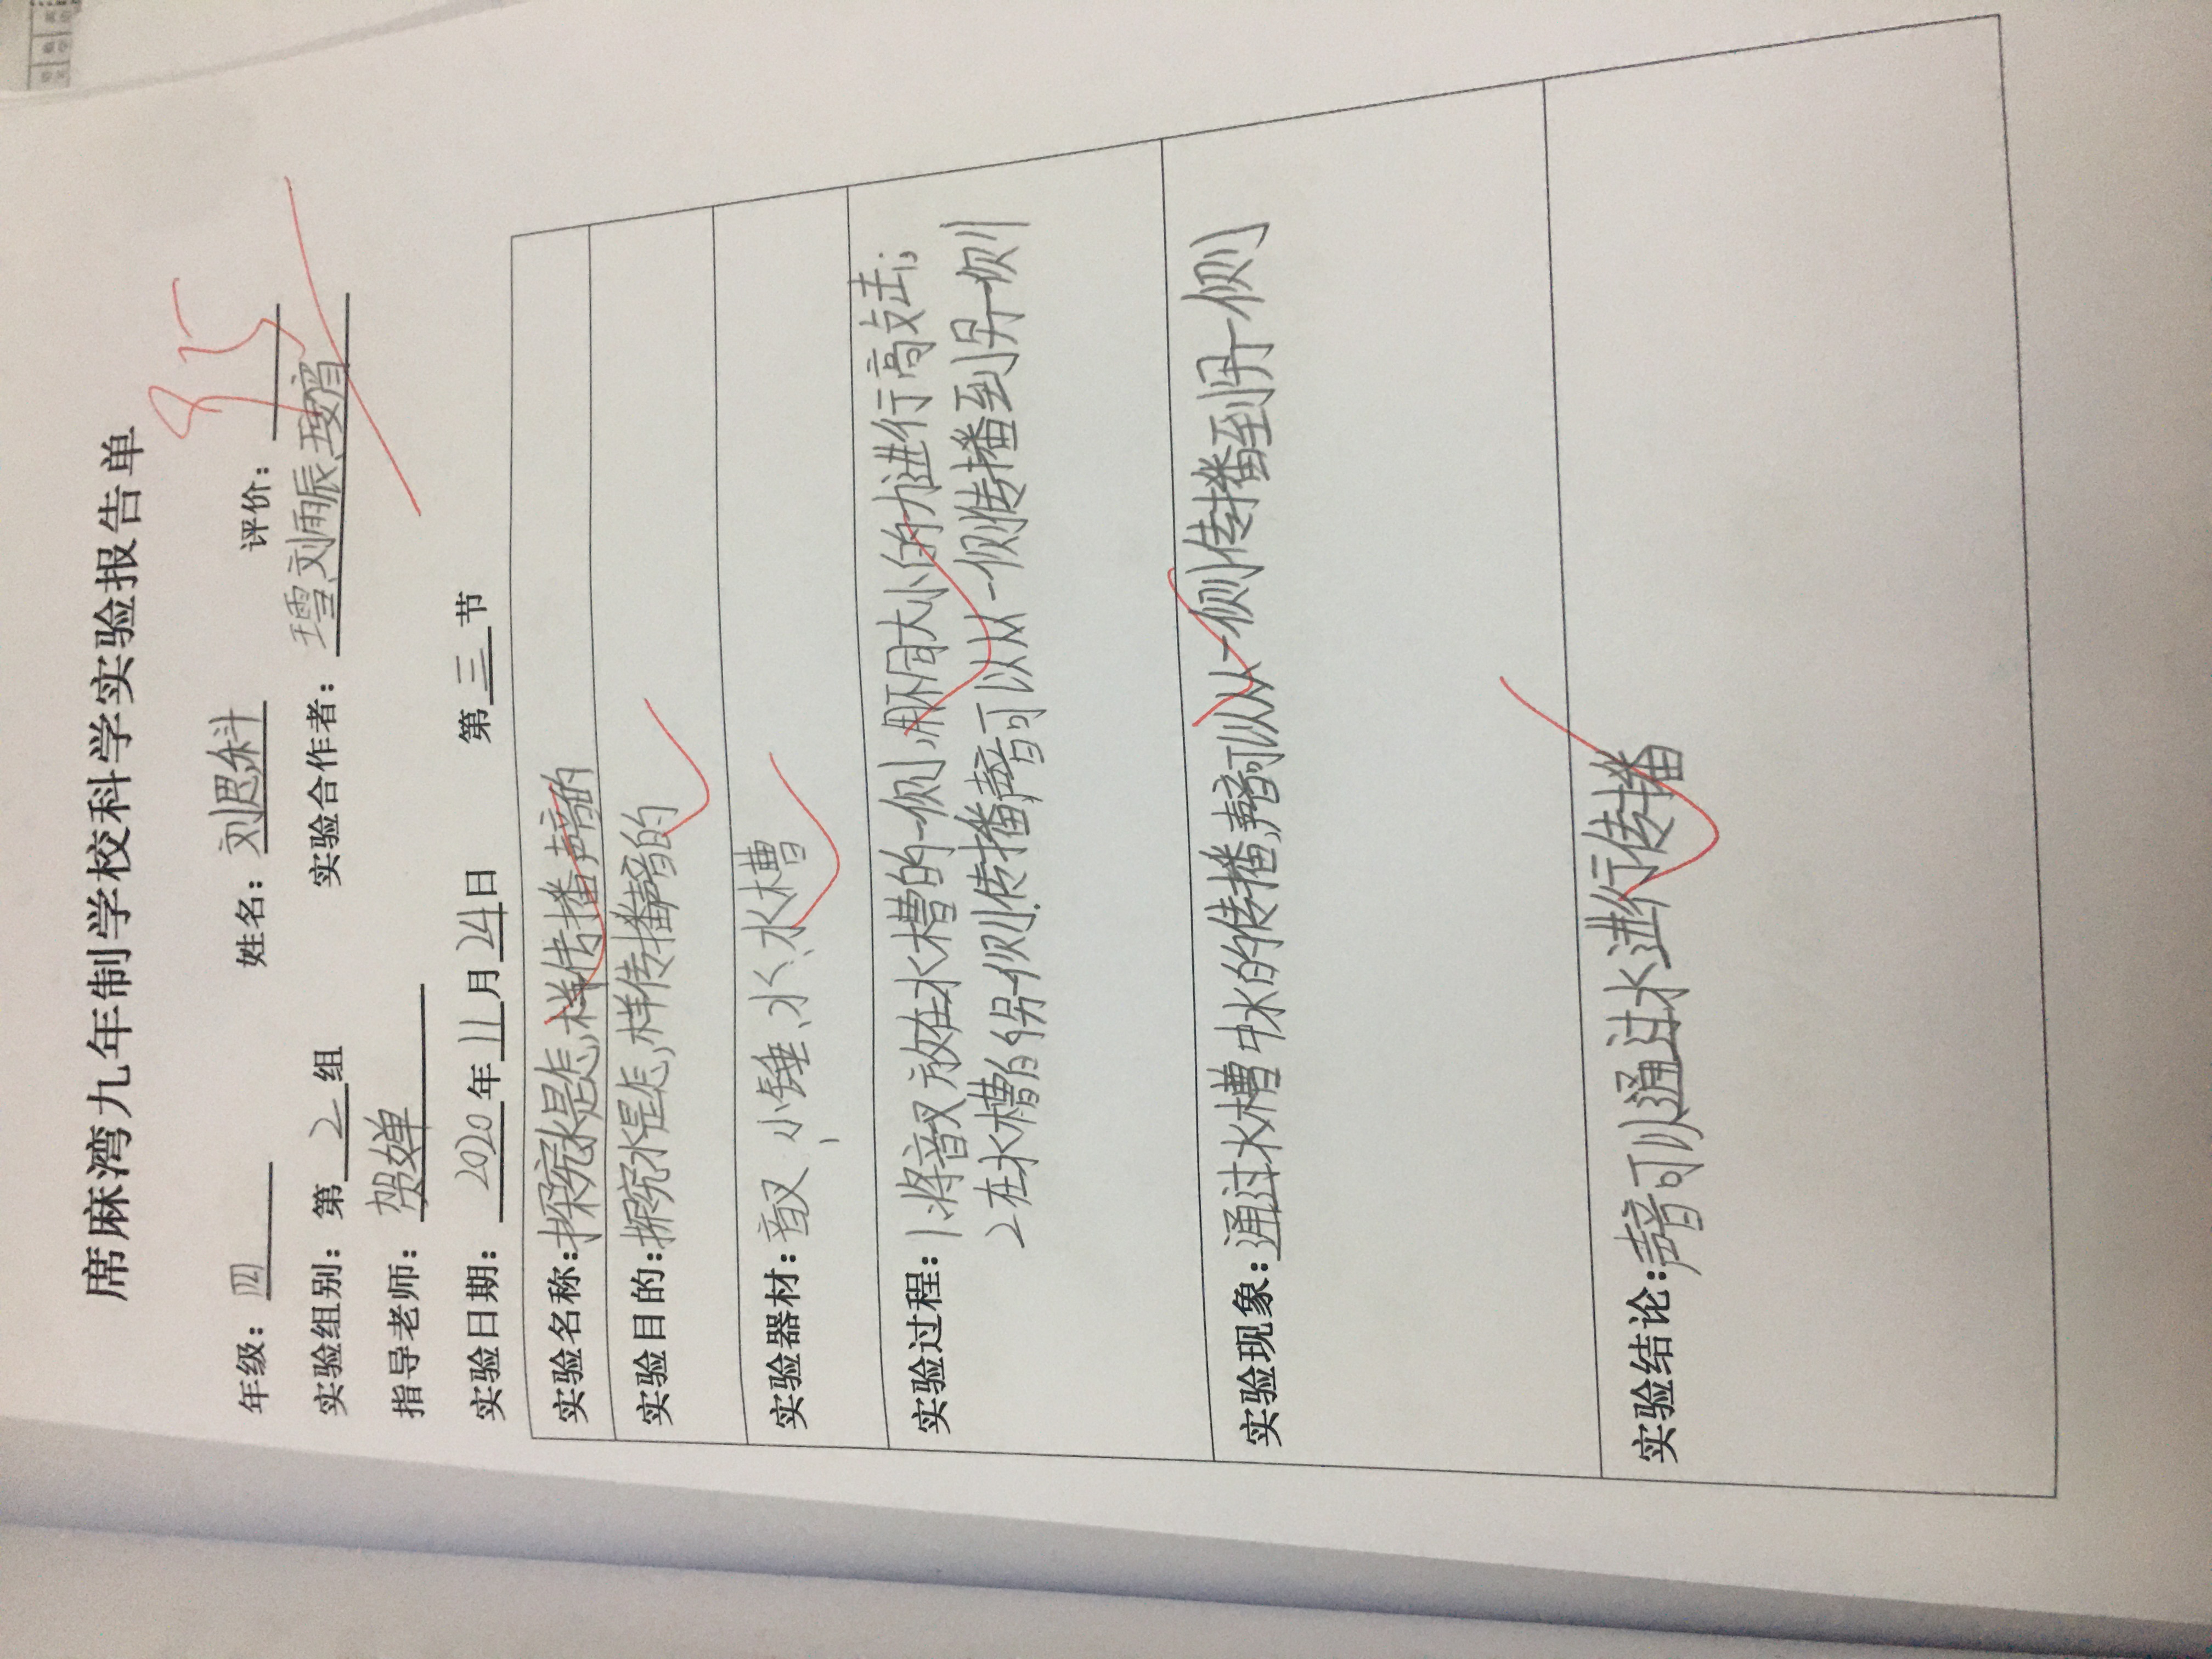 席麻湾九年制学校科学实验报告单
年级：四 姓名：刘思 评价：
实验组别：第2组 实验合作者：刘雨
指导老师：贺婵
实验日期：2020年11月24日 第三节
实验名称：探究水是怎样传播声音的
实验目的：探究水是怎样传播声音的
实验器材：音叉、小锤、水、水槽
实验过程：1、将音叉放在水槽的一侧，用不同大小的力进行高支击；
2在水槽的另一侧则传播声音可以从一侧传播到另一侧
实验现象：通过水槽中水的传播，声音可以从一侧传播到另一侧
实验结论：声音可以通过水进行传播